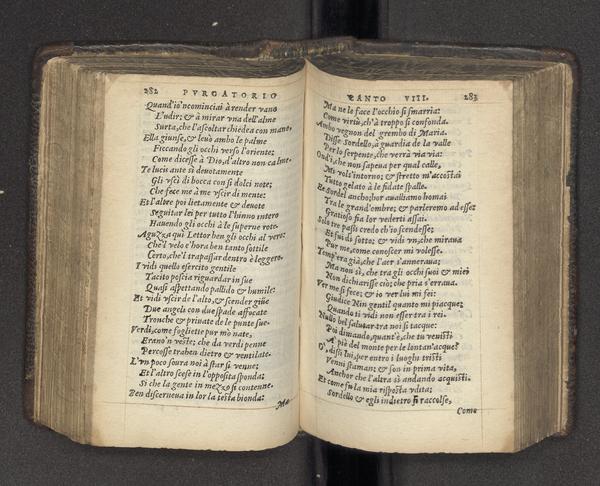 282 PVRGATORIO
Quand'io'ncominciai à render vano
L'udir; & à mirar vna dell'alme
Surta, che l'ascoltar chiedea con mano,
Ella giunse, & leuò ambo le palme
Ficcando gli occhi verso l'oriente;
Come dicesse à Dio, d'altro non calme.
Te lucis ante sì deuotamente
Gli vscì di bocca con sì dolci note;
Che fece me à me vscir di mente:
Et l'altre poi lietamente & deuote
Seguitar lei per tutto l'hinno intero
Hauendo gli occhi à le superne rote.
Aguzza quì Lettor ben gli occhi al vero:
Che'l velo e'hora ben tanto sottile
Certo, che'l trapassar dentro è leggero.
I vidi quello esercito gentile
Tacito poscia riguardar in sue
Quasi aspettando pallido & humile:
Et vidi vscir de l'alto, & scender giue
Due angeli con due spade affocate
Tronche & priuate de le punte sue.
Verdi, come fogliette pur mò nate,
Erano'n veste; che da verdi penne
Percosse trahen dietro & ventilate.
L'vn poco soura noi à star si venne;
Et l'altro scese in l'opposita sponda:
Sì che la gente in mezzo si contenne.
Ben discerneua in lor la testa bionda:
Ma
CANTO VIII. 283
Ma ne le face l'occhio si smarria:
Come virtù, ch'à troppo si confonda.
Ambo vegnon del grembo di Maria.
Disse Sordello, à guardia de la valle
Per lo serpente, che verrà via via:
Ond'i, che non sapeua per qual calle,
Mi volsi'ntorno; & stretto m'accostai
Tutto gelato à le fidate spalle.
Et Sordel ancho; hor auualliamo homai
Tra le grand'ombre; & parleremo ad esse:
Gratioso fia lor vederti assai.
Silo tre passi credo ch'io scendesse;
Et fui di sotto: & vidi vn, che miraua
Pur me, come conoscer mi volesse.
Temp'era già, che l'aer s'anneraua;
Ma non sì, che tra gli occhi suoi & miei
Non dichiarisse ciò; che pria s'erraua.
Ver me si fece; & io ver lui mi fei:
Giudice Nin gentil quanto mi piacque;
Quando ti vidi non esser tra i rei.
Nullo bel salutar tra noi si tacque:
Poi dimando, quant'è, che tu venisti
A piè del monte per le lontan'acque?
O, dissi lui, per entro i luoghi tristi
Venni staman; & son in prima vita,
Anchor che l'altra sì andando acquisti.
Et come fu la mia risposta vdita;
Sordello & egli indietro si raccolse,
Come